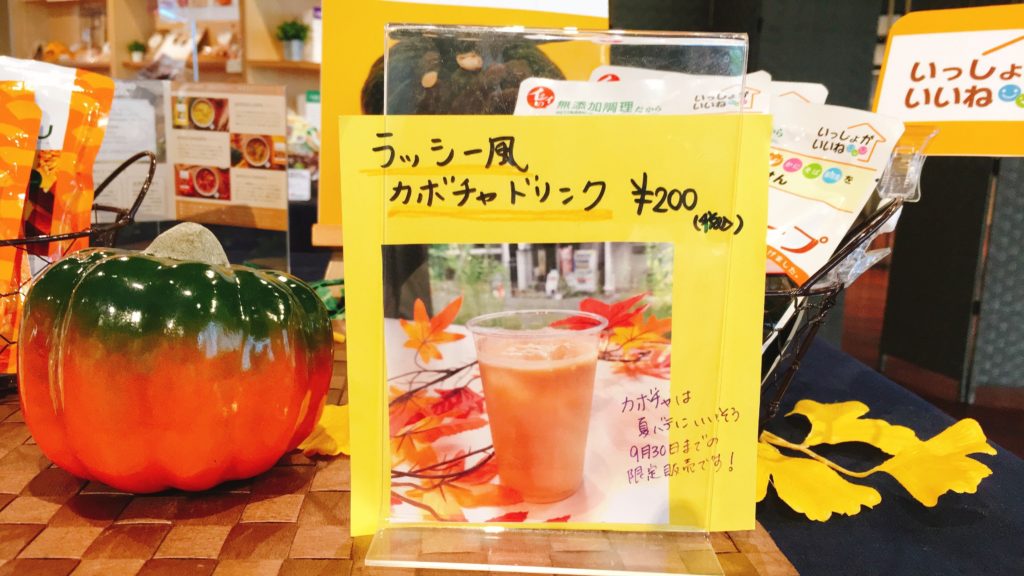 ラッシー風
カボチャドリンク ¥200
(税込)
カボチャは
夏バテにいいそう
9月30日までの
限定販売です!
無添加調理だから
いっしょが
いいね
いっしょが
いいね
いっしょが
いいね